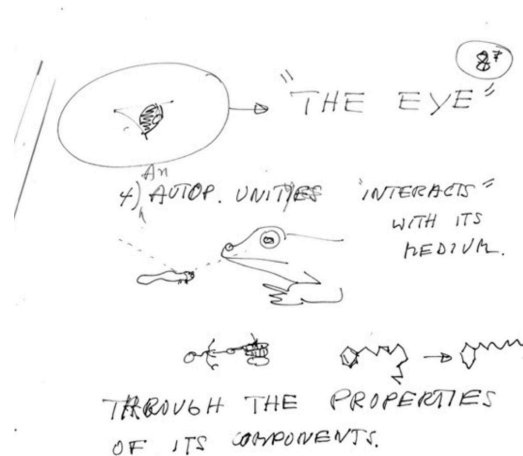 87
"THE EYE"
An
4) AUTOP. UNITIES "INTERACTS"
WITH ITS
MEDIUM.
THROUGH THE PROPERTIES
OF ITS COMPONENTS.